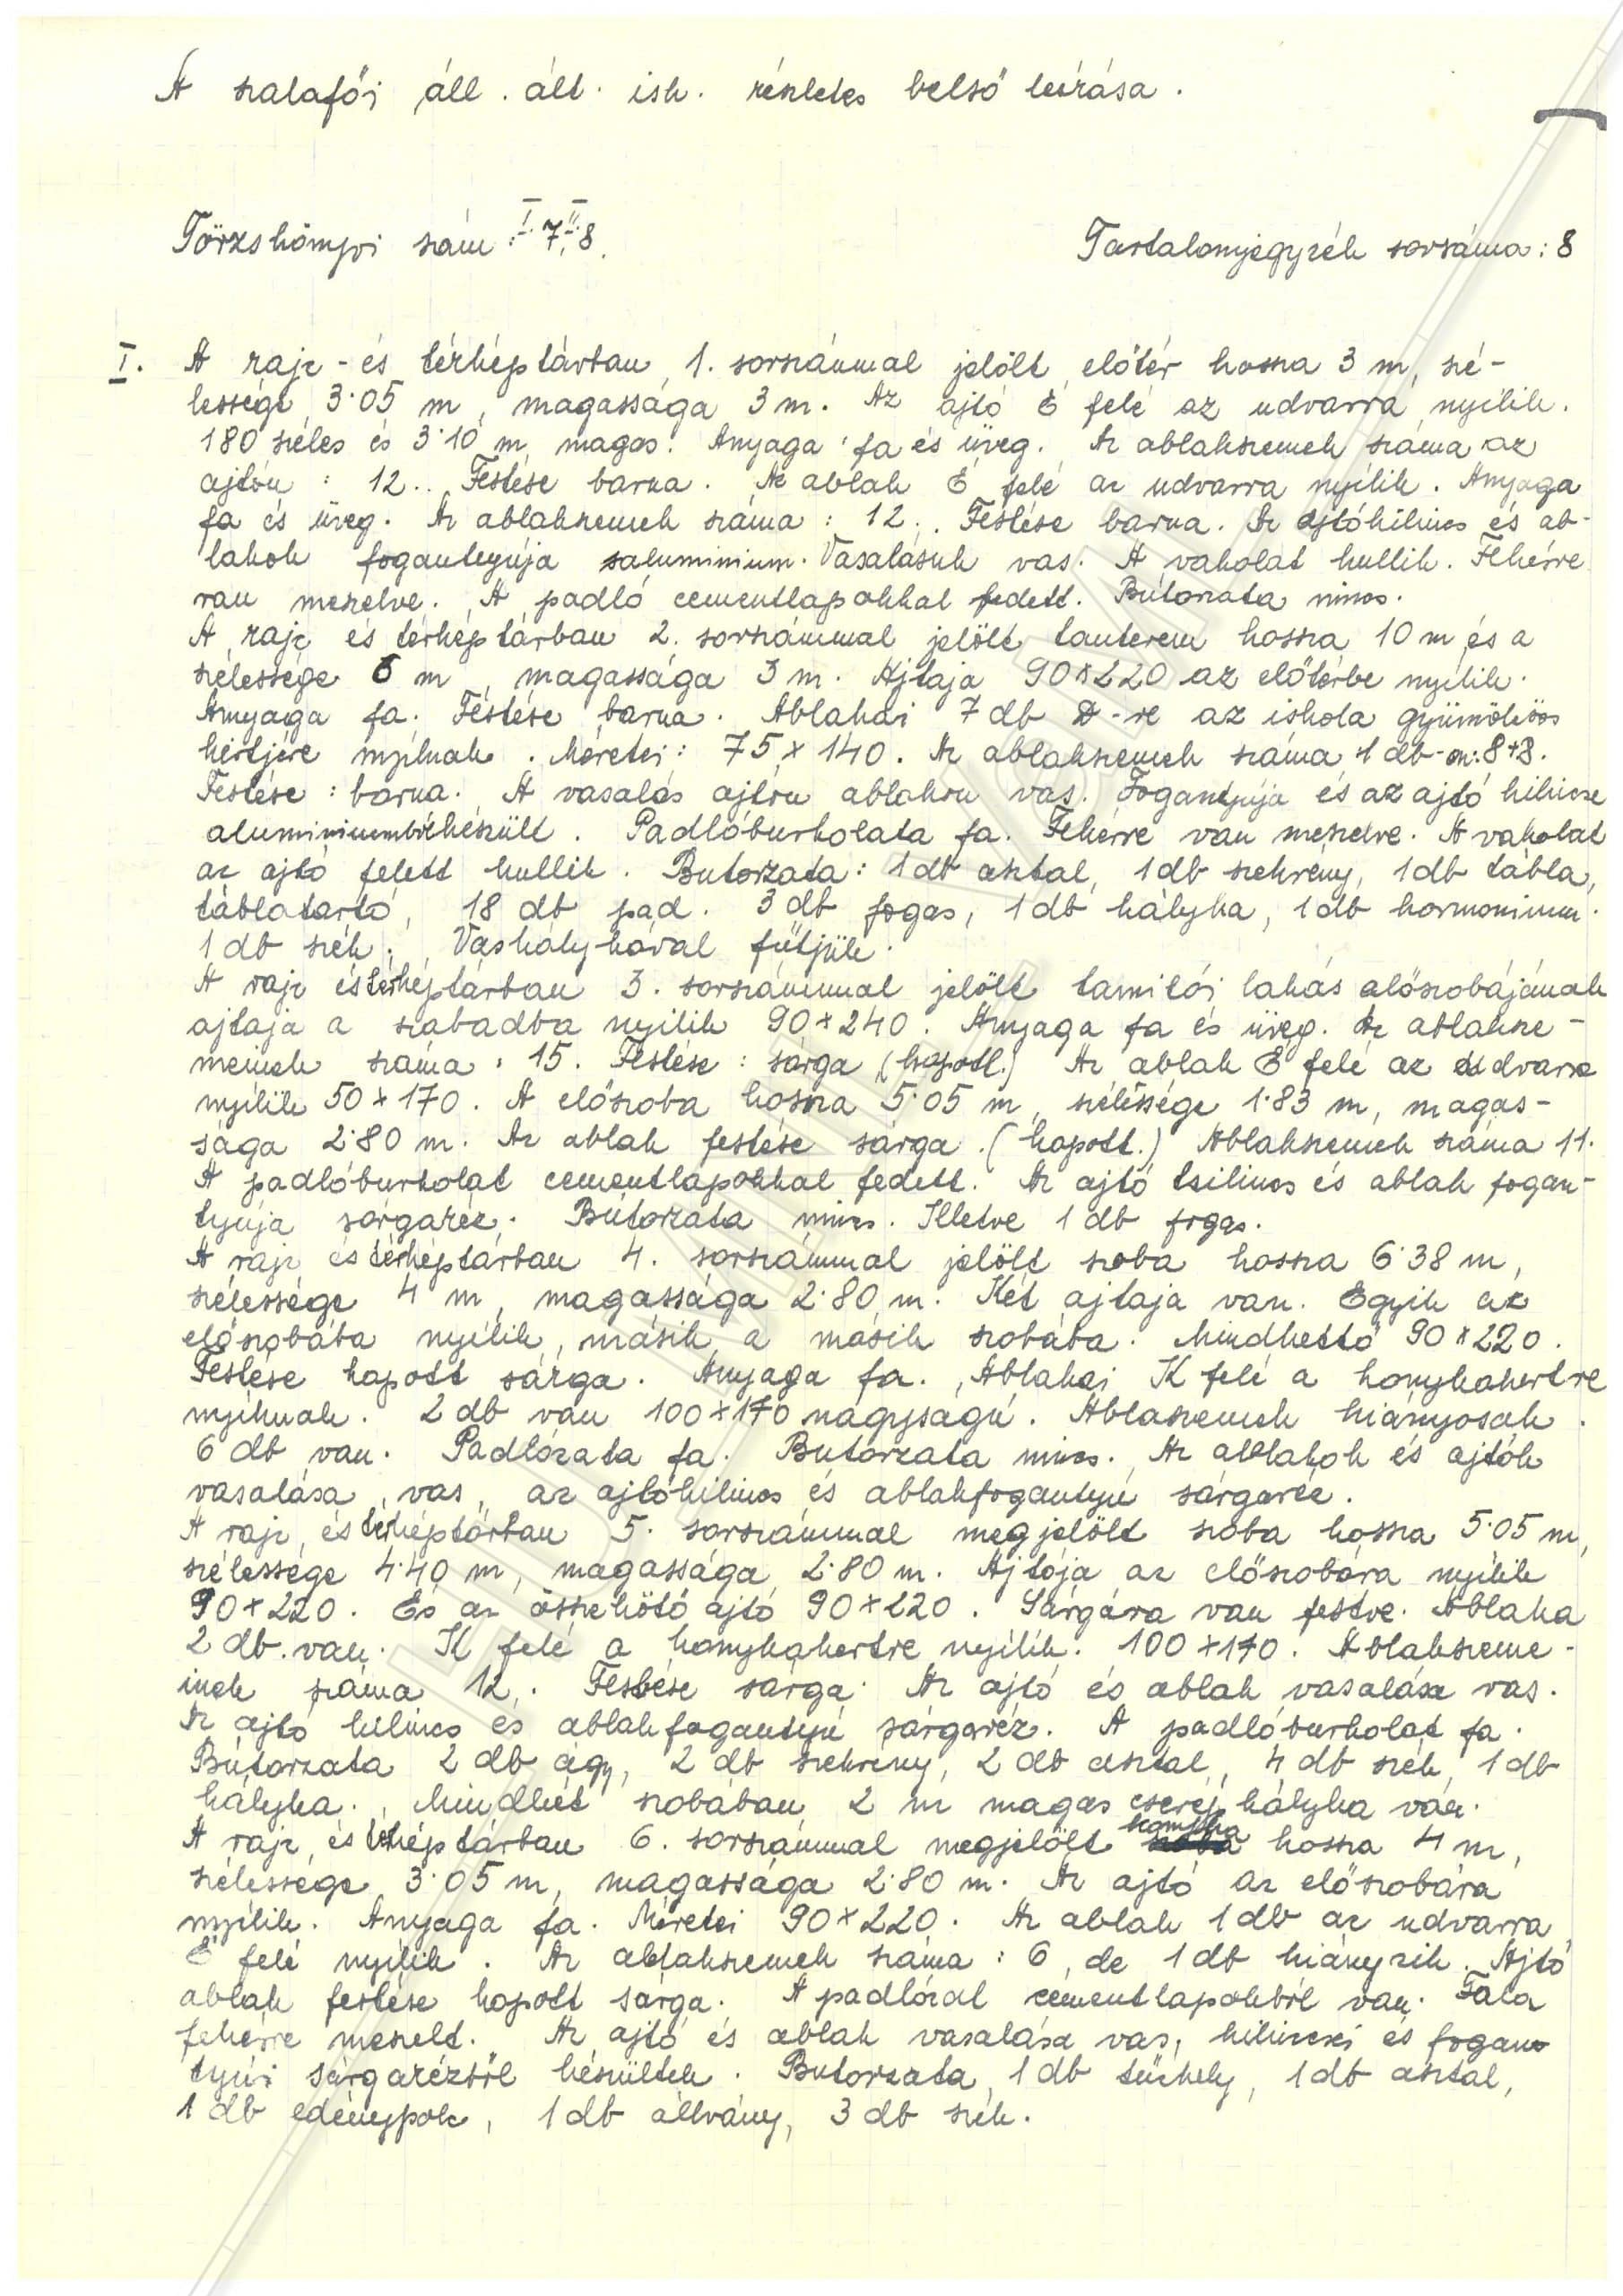 A szalafői áll. ált. isk. részletes belső leírása.
Törzskönyvi szám: I. 7, II. 8.
Tartalomjegyzék sorszáma: 8
I. A rajz- és térképtárban 1. sorszámmal jelölt előtér hossza 3 m, szé-
lessége 3·05 m, magassága 3 m. Az ajtó É felé az udvarra nyílik.
180 széles és 3·10 m magas. Anyaga: fa és üveg. Az ablakszemek száma az
ajtón: 12. Festése barna. Az ablak É felé az udvarra nyílik. Anyaga
fa és üveg. Az ablakszemek száma: 12. Festése barna. Az ajtókilincs és ab-
lakok fogantyúja aluminium. Vasalásuk vas. A vakolat hullik. Fehérre
van meszelve. A padló cementlapokkal fedett. Bútorzata nincs.
A rajz és térképtárban 2. sorszámmal jelölt tanterem hossza 10 m és a
szélessége 6 m, magassága 3 m. Ajtaja 90x220 az előtérbe nyílik.
Anyaga fa. Festése barna. Ablakai 7 db D-re az iskola gyümölcsös
kertjére nyílnak. Méretei: 75 x 140. Az ablakszemek száma 1 db-on: 8+8.
Festése: barna. A vasalás ajtón ablakon vas. Fogantyúja és az ajtó kilincse
aluminiumból készült. Padlóburkolata fa. Fehérre van meszelve. A vakolat
az ajtó felett hullik. Butorzata: 1 db asztal, 1 db szekrény, 1 db tábla,
táblatartó, 18 db pad. 3 db fogas, 1 db kályha, 1 db harmonium.
1 db szék. Vaskályhával fűtjük.
A rajz és térképtárban 3. sorszámmal jelölt tanítói lakás előszobájának
ajtaja a szabadba nyílik 90x240. Anyaga fa és üveg. Az ablaksze-
meinek száma: 15. Festése: sárga (kopott.) Az ablak É felé az udvarra
nyílik 50x170. A előszoba hossza 5·05 m, szélessége 1·83 m, magas-
sága 2·80 m. Az ablak festése sárga. (kopott.) Ablakszemek száma 11.
A padlóburkolat cementlapokkal fedett. Az ajtó kilincs és ablak fogan-
tyúja sárgaréz. Bútorzata nincs. Illetve 1 db fogas.
A rajz és térképtárban 4. sorszámmal jelölt szoba hossza 6·38 m,
szélessége 4 m, magassága 2·80 m. Két ajtaja van. Egyik az
előszobába nyílik, másik a másik szobába. Mindkettő 90x220.
Festése kopott sárga. Anyaga fa. Ablakai K felé a konyhakertre
nyílnak. 2 db van 100x170 nagyságú. Ablaszemek hiányosak.
6 db van. Padlózata fa. Butorzata nincs. Az ablakok és ajtók
vasalása vas, az ajtókilincs és ablakfogantyú sárgaréz.
A rajz és térképtárban 5. sorszámmal megjelölt szoba hossza 5·05 m,
szélessége 4·40 m, magassága 2·80 m. Ajtója az előszobára nyílik
90x220. És az összekötő ajtó 90x220. Sárgára van festve. Ablaka
2 db. van. K felé a konyhakertre nyílik. 100x170. Ablakszeme-
inek száma 12. Festése sárga. Az ajtó és ablak vasalása vas.
Az ajtó kilincs és ablakfogantyú sárgaréz. A padlóburkolat fa.
Bútorzata 2 db ágy, 2 db szekreny, 2 db asztal, 4 db szék, 1 db
kályha. Mindkét szobában 2 m magas cserép kályha van.
A rajz és térképtárban 6. sorszámmal megjelölt konyha hossza 4 m,
szélessége 3·05 m, magassága 2·80 m. Az ajtó az előszobára
nyílik. Anyaga fa. Méretei 90x220. Az ablak 1 db az udvarra
É felé nyílik. Az ablakszemek száma: 6, de 1 db hiányzik. Ajtó
ablak festése kopott sárga. A padlózat cementlapokból van. Fala
fehérre meszelt. Az ajtó és ablak vasalása vas, kilincsei és fogan
tyúi sárgarézből készültek. Butorzata 1 db tűzhely, 1 db asztal,
1 db edénypolc, 1 db állvány, 3 db szék.